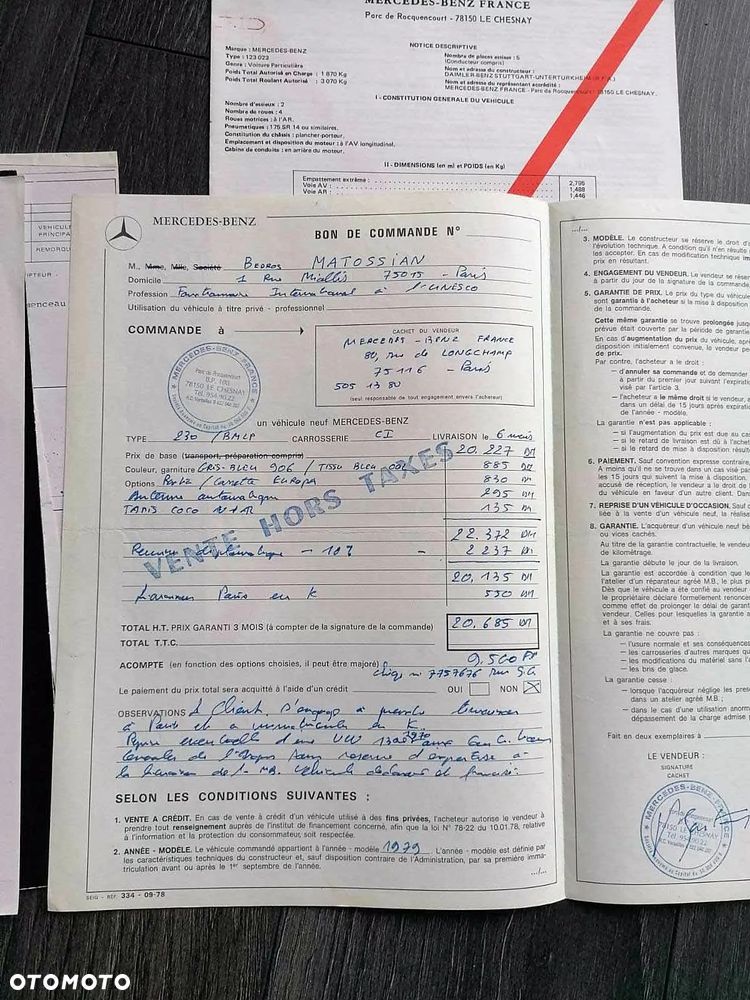 MERCEDES-BENZ FRANCE
Parc de Rocquencourt - 78150 LE CHESNAY
NOTICE DESCRIPTIVE
Marque : MERCEDES-BENZ
Type : 123 023
Genre : Voiture Particulière
Poids Total Autorisé en Charge : 1 870 Kg
Poids Total Roulant Autorisé : 3 070 Kg
Nombre de places assises : 5
(Conducteur compris)
Nom et adresse du constructeur :
DAIMLER-BENZ STUTTGART-UNTERTURKHEIM
Nom et adresse du représentant accrédité :
MERCEDES-BENZ FRANCE - Parc de Rocquencourt 78150 LE CHESNAY
I - CONSTITUTION GENERALE DU VEHICULE
Nombre d'essieux : 2
Nombre de roues : 4
Roues motrices : à l'AR.
Pneumatiques : 175 SR 14 ou similaires.
Constitution du châssis : plancher-porteur.
Emplacement et disposition du moteur : à l'AV longitudinal.
Cabine de conduite : en arrière du moteur.
II - DIMENSIONS (en m) et POIDS (en Kg)
Empattement extrême : 2,795
Voie AV : 1,488
Voie AR : 1,446
VEHICULE
PRINCIPA
REMORQU
MERCEDES-BENZ
BON DE COMMANDE N°
M., Mme, Mlle, Société BEDROS MATOSSIAN
Domicile 1 Rue Miollis 75015 - Paris
Profession Fonctionnaire International à l'UNESCO
Utilisation du véhicule à titre privé - professionnel
COMMANDE à
CACHET DU VENDEUR
MERCEDES-BENZ FRANCE
80, rue de LONGCHAMP
75116 - Paris
505 13 80
(seul responsable de tout engagement envers l'acheteur)
MERCEDES-BENZ FRANCE
Parc de Rocquencourt
B.P. 100
78150 LE CHESNAY
Tél. 954.90.22
un véhicule neuf MERCEDES-BENZ
TYPE 230 / CARROSSERIE CI LIVRAISON le 6 mois
Prix de base (transport, préparation compris) 20.227 DM
Couleur, garniture GRIS-BLEU 906 / TISSU BLEU 885 DM
Options / EUROPA 830 DM
Antenne automatique 295 DM
TAPIS COCO AV+AR 135 DM
VENTE HORS TAXES
22.372 DM
Remise diplomatique - 10% - 2 237 DM
20.135 DM
Livraison Paris en K 550 DM
TOTAL H.T. PRIX GARANTI 3 MOIS (à compter de la signature de la commande) 20.685 DM
TOTAL T.T.C.
ACOMPTE (en fonction des options choisies, il peut être majoré) 9.500 FF
7757676 S.G.
Le paiement du prix total sera acquitté à l'aide d'un crédit OUI NON
OBSERVATIONS Client s'engage à prendre livraison
à Paris et à immatriculer en K.
Reprise éventuelle d'une VW 1300 1970
sous réserve d'expertise à
la livraison de la MB. Véhicule dédouané et francisé.
SELON LES CONDITIONS SUIVANTES :
1. VENTE A CRÉDIT. En cas de vente à crédit d'un véhicule utilisé à des fins privées, l'acheteur autorise le vendeur à
prendre tout renseignement auprès de l'institut de financement concerné, afin que la loi N° 78-22 du 10.01.78, relative
à l'information et la protection du consommateur, soit respectée.
2. ANNÉE - MODÈLE. Le véhicule commandé appartient à l'année - modèle 1979. L'année - modèle est définie par
les caractéristiques techniques du constructeur et, sauf disposition contraire de l'Administration, par sa première imma-
triculation avant ou après le 1er septembre de l'année.
.../...
SEIG - RÉF. 334 - 09-78
3. MODÈLE. Le constructeur se réserve le droit d'
l'évolution technique. A condition qu'il n'en résulte
les accepter. En cas de modification technique im
prix en résultant.
4. ENGAGEMENT DU VENDEUR. Le vendeur se réser
à partir du jour de la signature de la commande.
5. GARANTIE DE PRIX. Le prix du type du véhicule
sont garantis à l'acheteur si la mise à disposition
de la commande.
Cette même garantie se trouve prolongée jusq
prévue était couverte par la période de garantie
En cas d'augmentation du prix du véhicule, après
disposition initialement convenue, le vendeur pe
de prix.
Par contre, l'acheteur a le droit :
— d'annuler sa commande et de demander
à partir du premier jour suivant l'expirati
visé par l'article 3.
— l'acheteur a le même droit si le vendeur, a
dans un délai de 15 jours après expirat
de l'année - modèle.
La garantie n'est pas applicable :
— si l'augmentation du prix est due au ca
— si le retard de livraison est dû à l'achet
— si le retard de mise à disposition résulte
6. PAIEMENT. Sauf convention expresse contraire,
A moins qu'il ne se trouve dans un cas visé pa
les 15 jours qui suivent la mise à disposition
accusé de réception, le vendeur a le droit de
du véhicule en faveur d'un autre client. Dan
7. REPRISE D'UN VÉHICULE D'OCCASION. Sauf
liée à la vente d'un véhicule neuf, la réalise
8. GARANTIE. L'acquéreur d'un véhicule neuf bé
ou vices cachés.
Au titre de la garantie contractuelle, le vendeur
de kilométrage.
La garantie débute le jour de la livraison.
La garantie est accordée à condition que le
l'atelier d'un réparateur agréé M.B., le plus pr
Dès que le véhicule a été confié au vendeur
le propriétaire déclare formellement renoncer
comme effet de prolonger le délai de garant
vendeur. Celles pour lesquelles la garantie a
et à ses frais.
La garantie ne couvre pas :
— l'usure normale et ses conséquences
— les carrosseries d'autres marques qu
— les modifications du matériel sans l'a
— les bris de glace.
La garantie cesse :
— lorsque l'acquéreur néglige les pres
dans un atelier agréé M.B.;
— dans le cas d'une utilisation anorm
dépassement de la charge admise
Fait en deux exemplaires à
LE VENDEUR :
SIGNATURE
CACHET
.../...
OTOMOTO